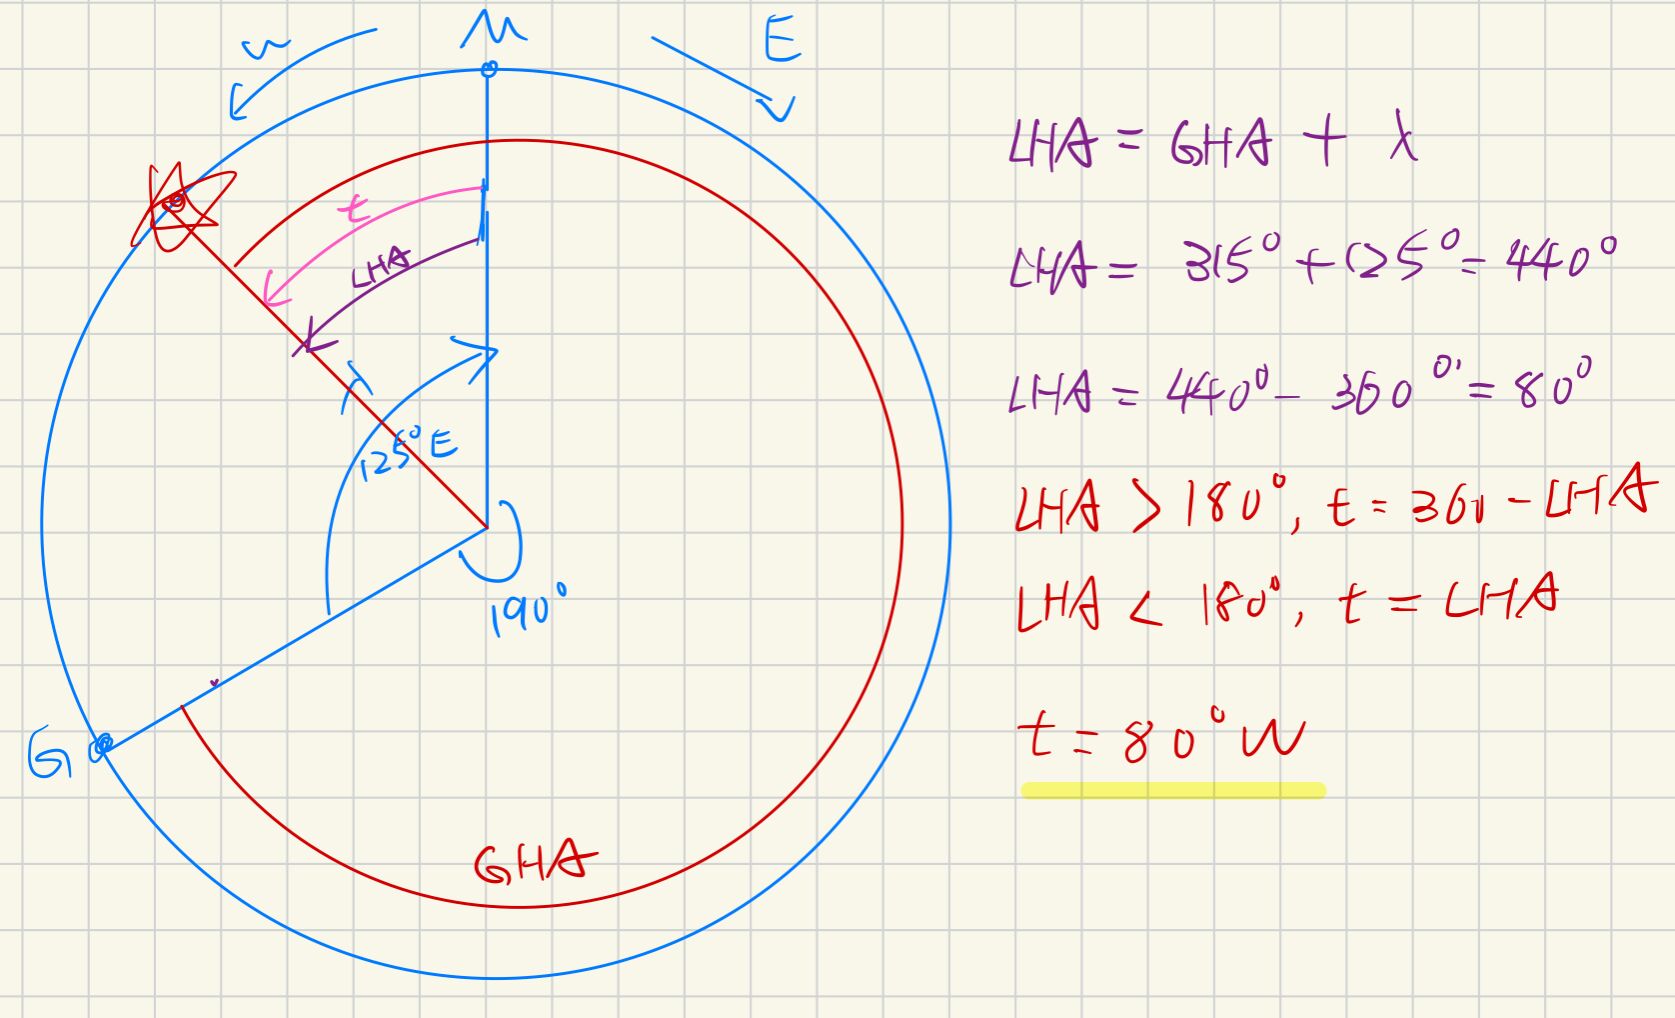 W
M
E
t
LHA
λ
125° E
190°
G
GHA
LHA = GHA + λ
LHA = 315° + 125° = 440°
LHA = 440° - 360° = 80°
LHA > 180°, t = 360 - LHA
LHA < 180°, t = LHA
t = 80° W